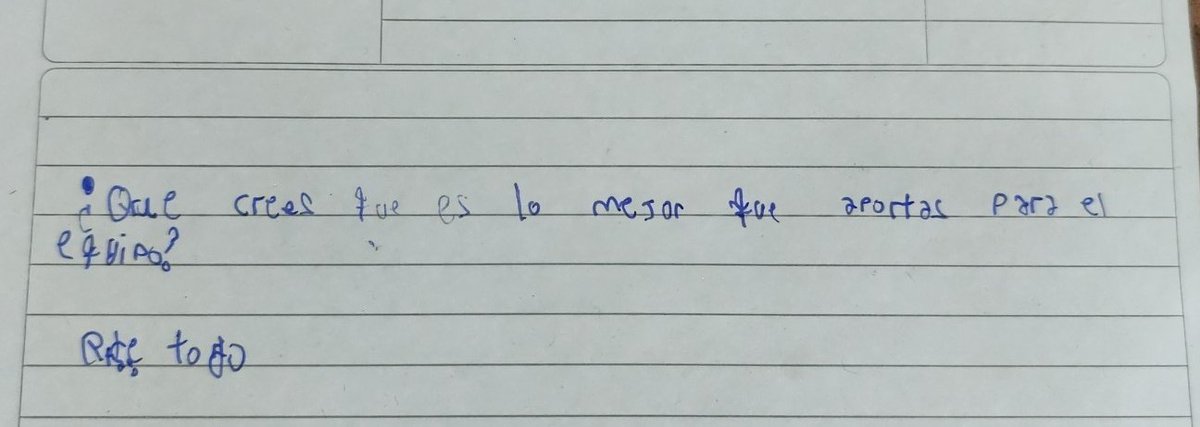 ¿Que crees que es lo mejor que aportas para el
equipo?
todo